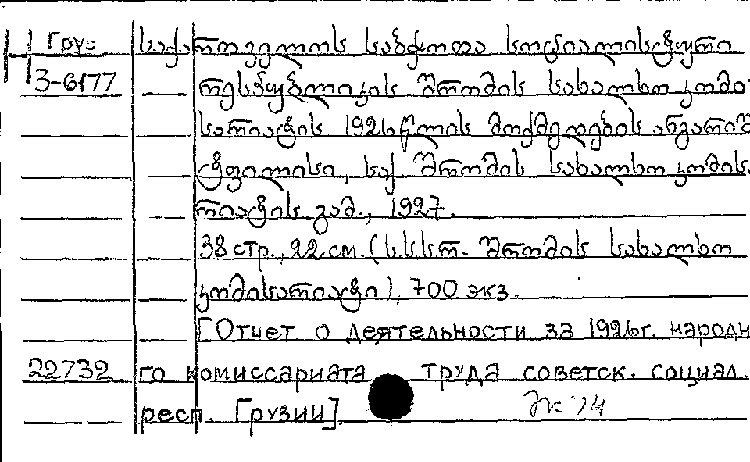 Груз საქართველოს საბჭოთა სოციალისტური
3-6177 რესპუბლიკის შრომის სახალხო კომი
სარიატის 1926 წლის მოქმედების ანგარიშ
ტფილისი, საქ შრომის სახალხო კომის.
რიატის გამ., 1927.
38 стр., 22 см. (ს.ს.ს.რ. შრომის სახალხო
კომისარიატი), 700 экз.
[Отчет о деятельности за 1926 г. народн
22732 го комиссариата труда советск. социал.
респ. Грузии]